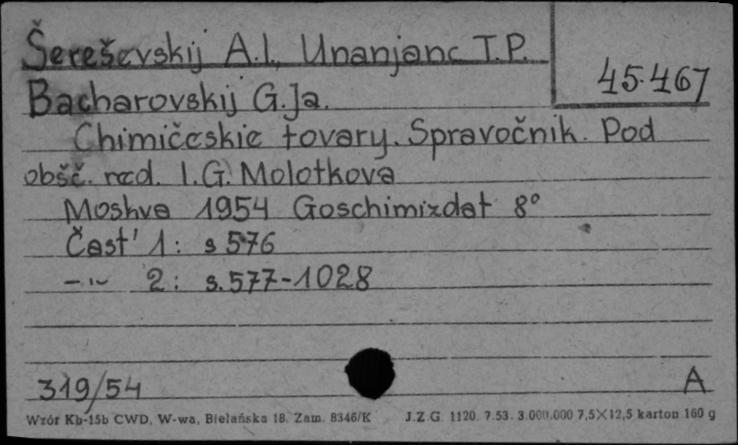 Šereševskij A.I., Unanjanc T.P.
45.467
Bacharovskij G.Ja.
Chimičeskie tovary. Spravočnik. Pod
obšč. red. I.G. Molotkova
Moskva 1954 Goschimizdat 8°
Čast' 1: s 576
-"- 2: s. 577-1028
319/54
A
Wzór Kb-15b CWD, W-wa, Bielańska 18. Zam. 8346/K J.Z.G. 1120. 7.53. 3.000.000 7,5×12,5 karton 160 g